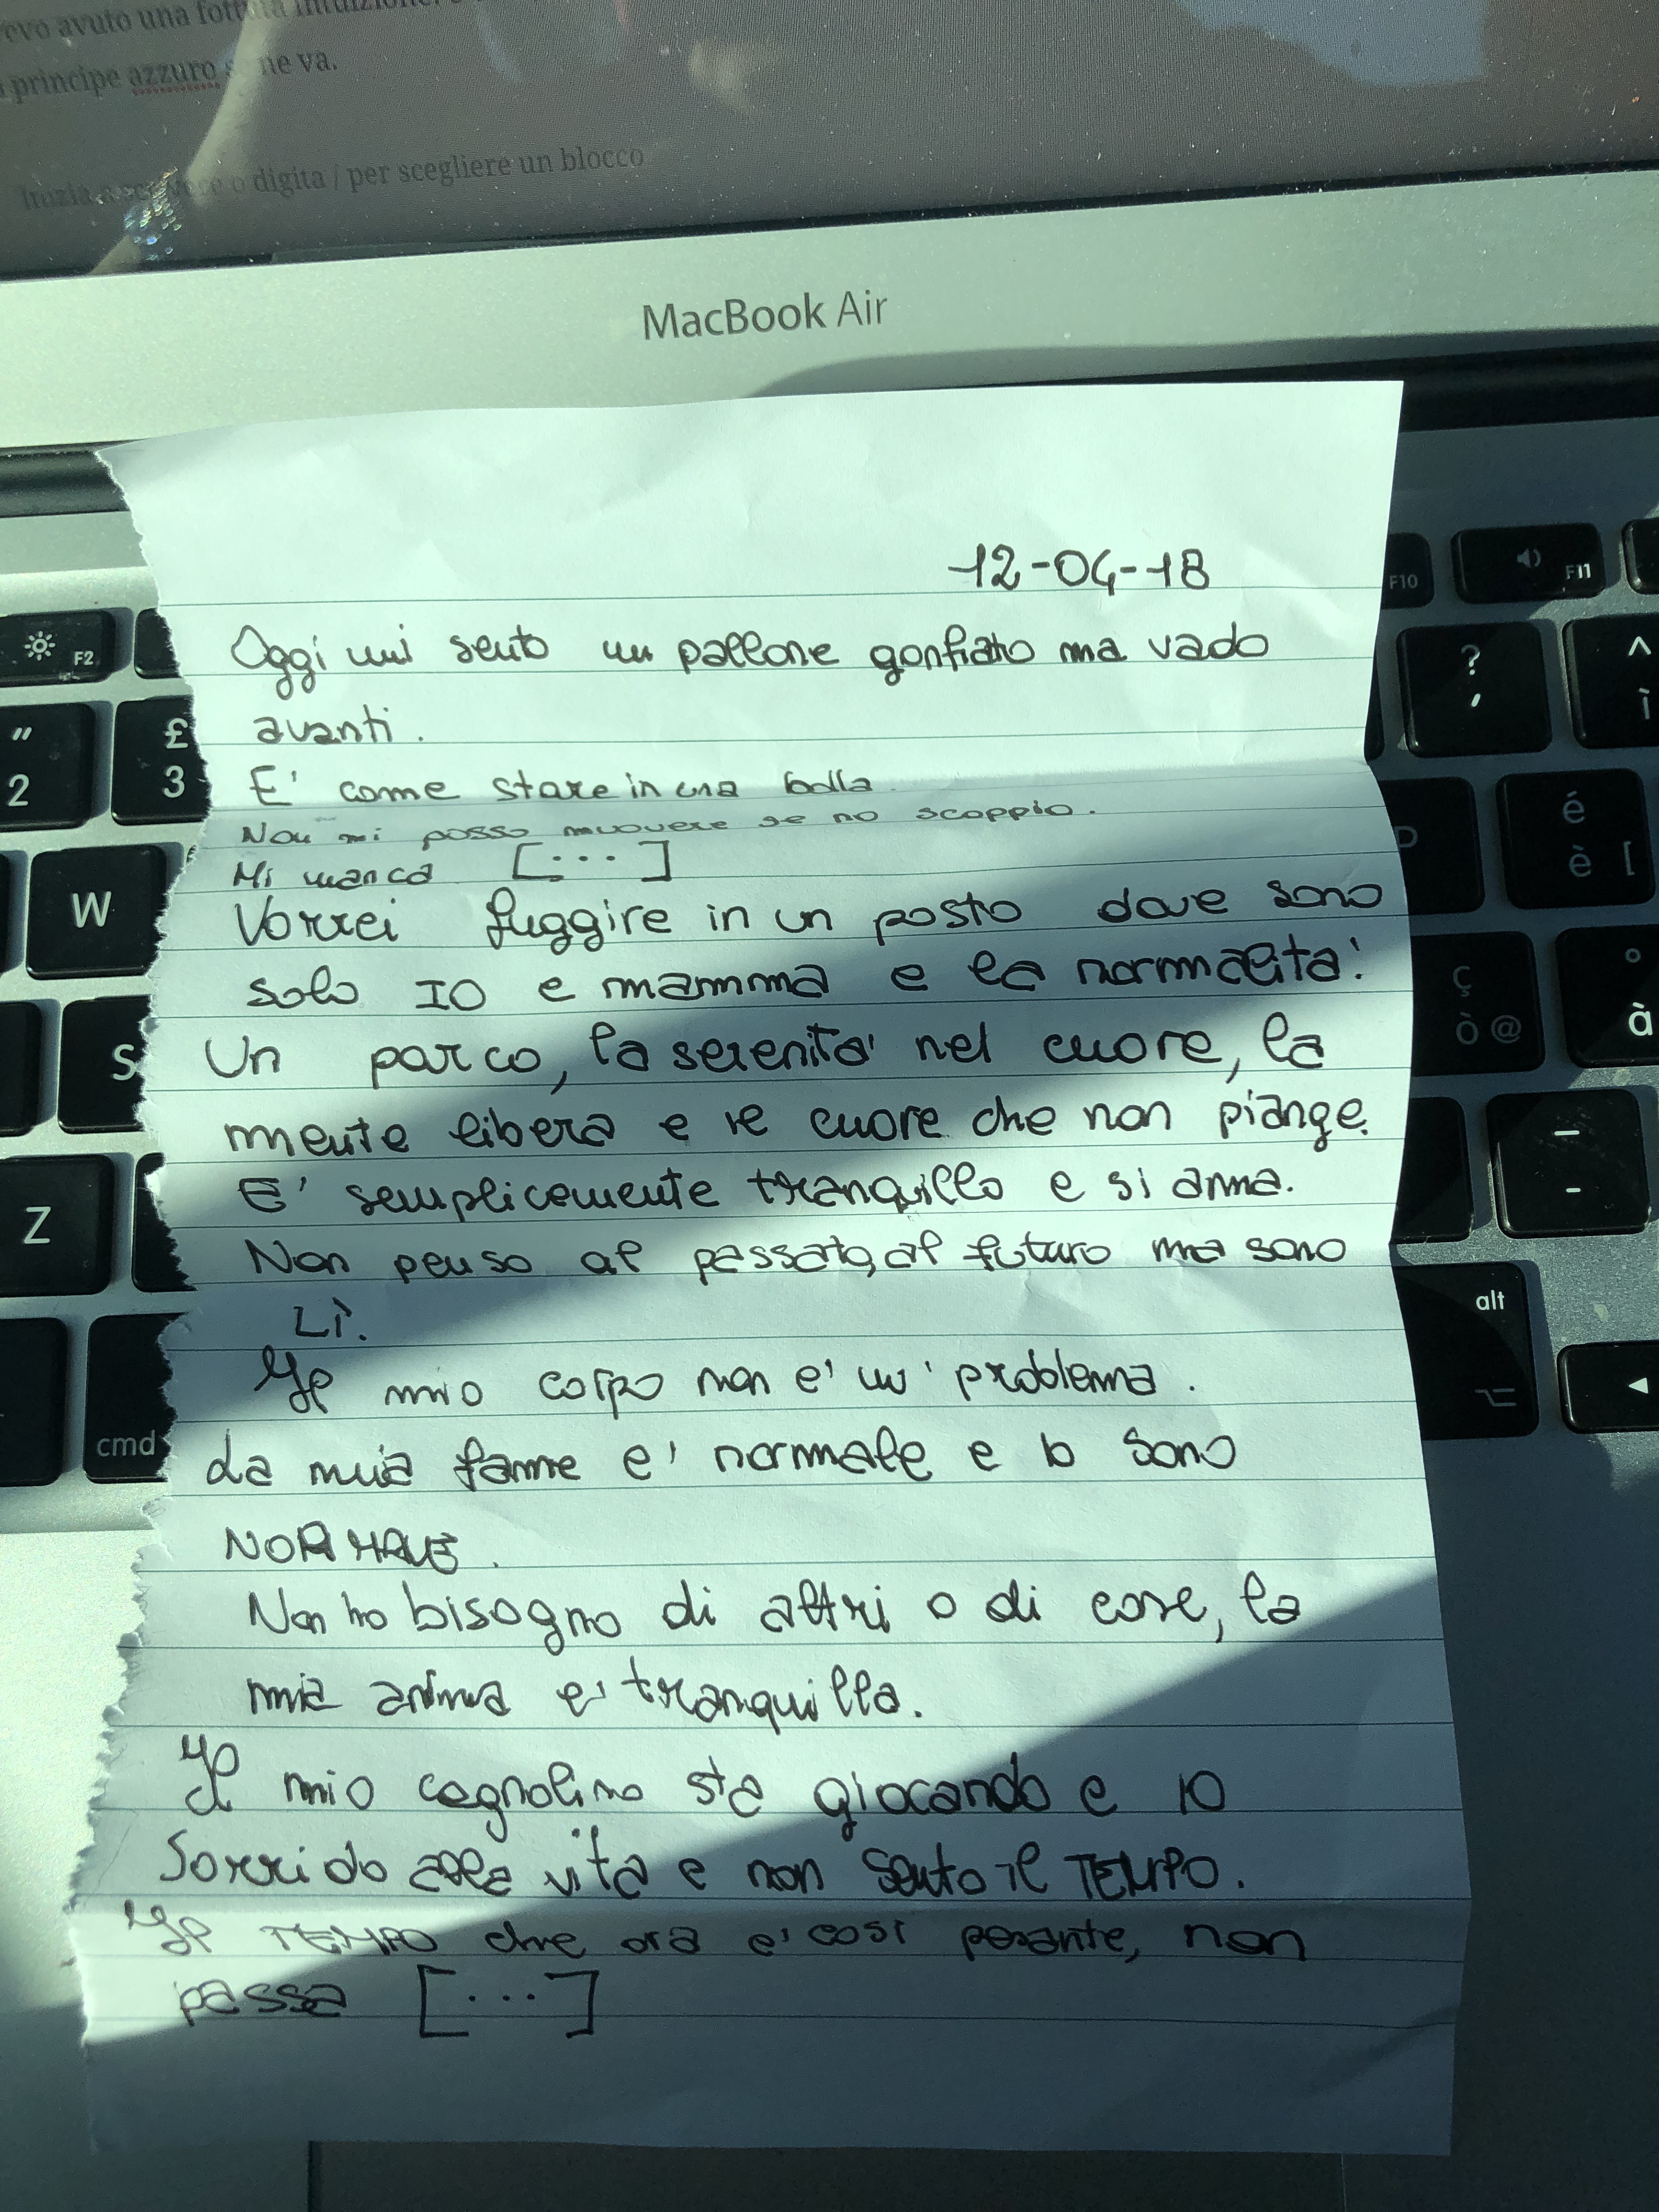 evo avuto una fottuta intuizione.
principe azzuro se ne va.
Inizia a scrivere o digita / per scegliere un blocco
MacBook Air
F2
F10
F11
"
2
£
3
?
'
^
ì
W
P
é
è [
S
ç
ò @
°
à
Z
_
-
cmd
alt
12-04-18
Oggi mi sento un pallone gonfiato ma vado
avanti.
E' come stare in una bolla.
Non mi posso muovere se no scoppio.
Mi manca [...]
Vorrei fuggire in un posto dove sono
solo IO e mamma e la normalità.
Un parco, la serenita' nel cuore, la
mente libera e il cuore che non piange.
E' semplicemente tranquillo e si ama.
Non penso al passato, al futuro ma sono
LÌ.
Il mio corpo non e' un' problema.
La mia fame e' normale e io sono
NORMALE.
Non ho bisogno di altri o di cose, la
mia anima e' tranquilla.
Il mio cagnolino sta giocando e IO
Sorrido alla vita e non sento il TEMPO.
Il TEMPO che ora e' così pesante, non
passa [...]